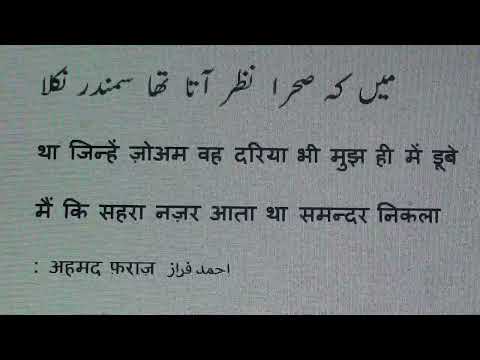 میں کہ صحرا نظر آتا تھا سمندر نکلا
था जिन्हें ज़ोअम वह दरिया भी मुझ ही में डूबे
मैं कि सहरा नज़र आता था समन्दर निकला
: अहमद फ़राज़ احمد فراز